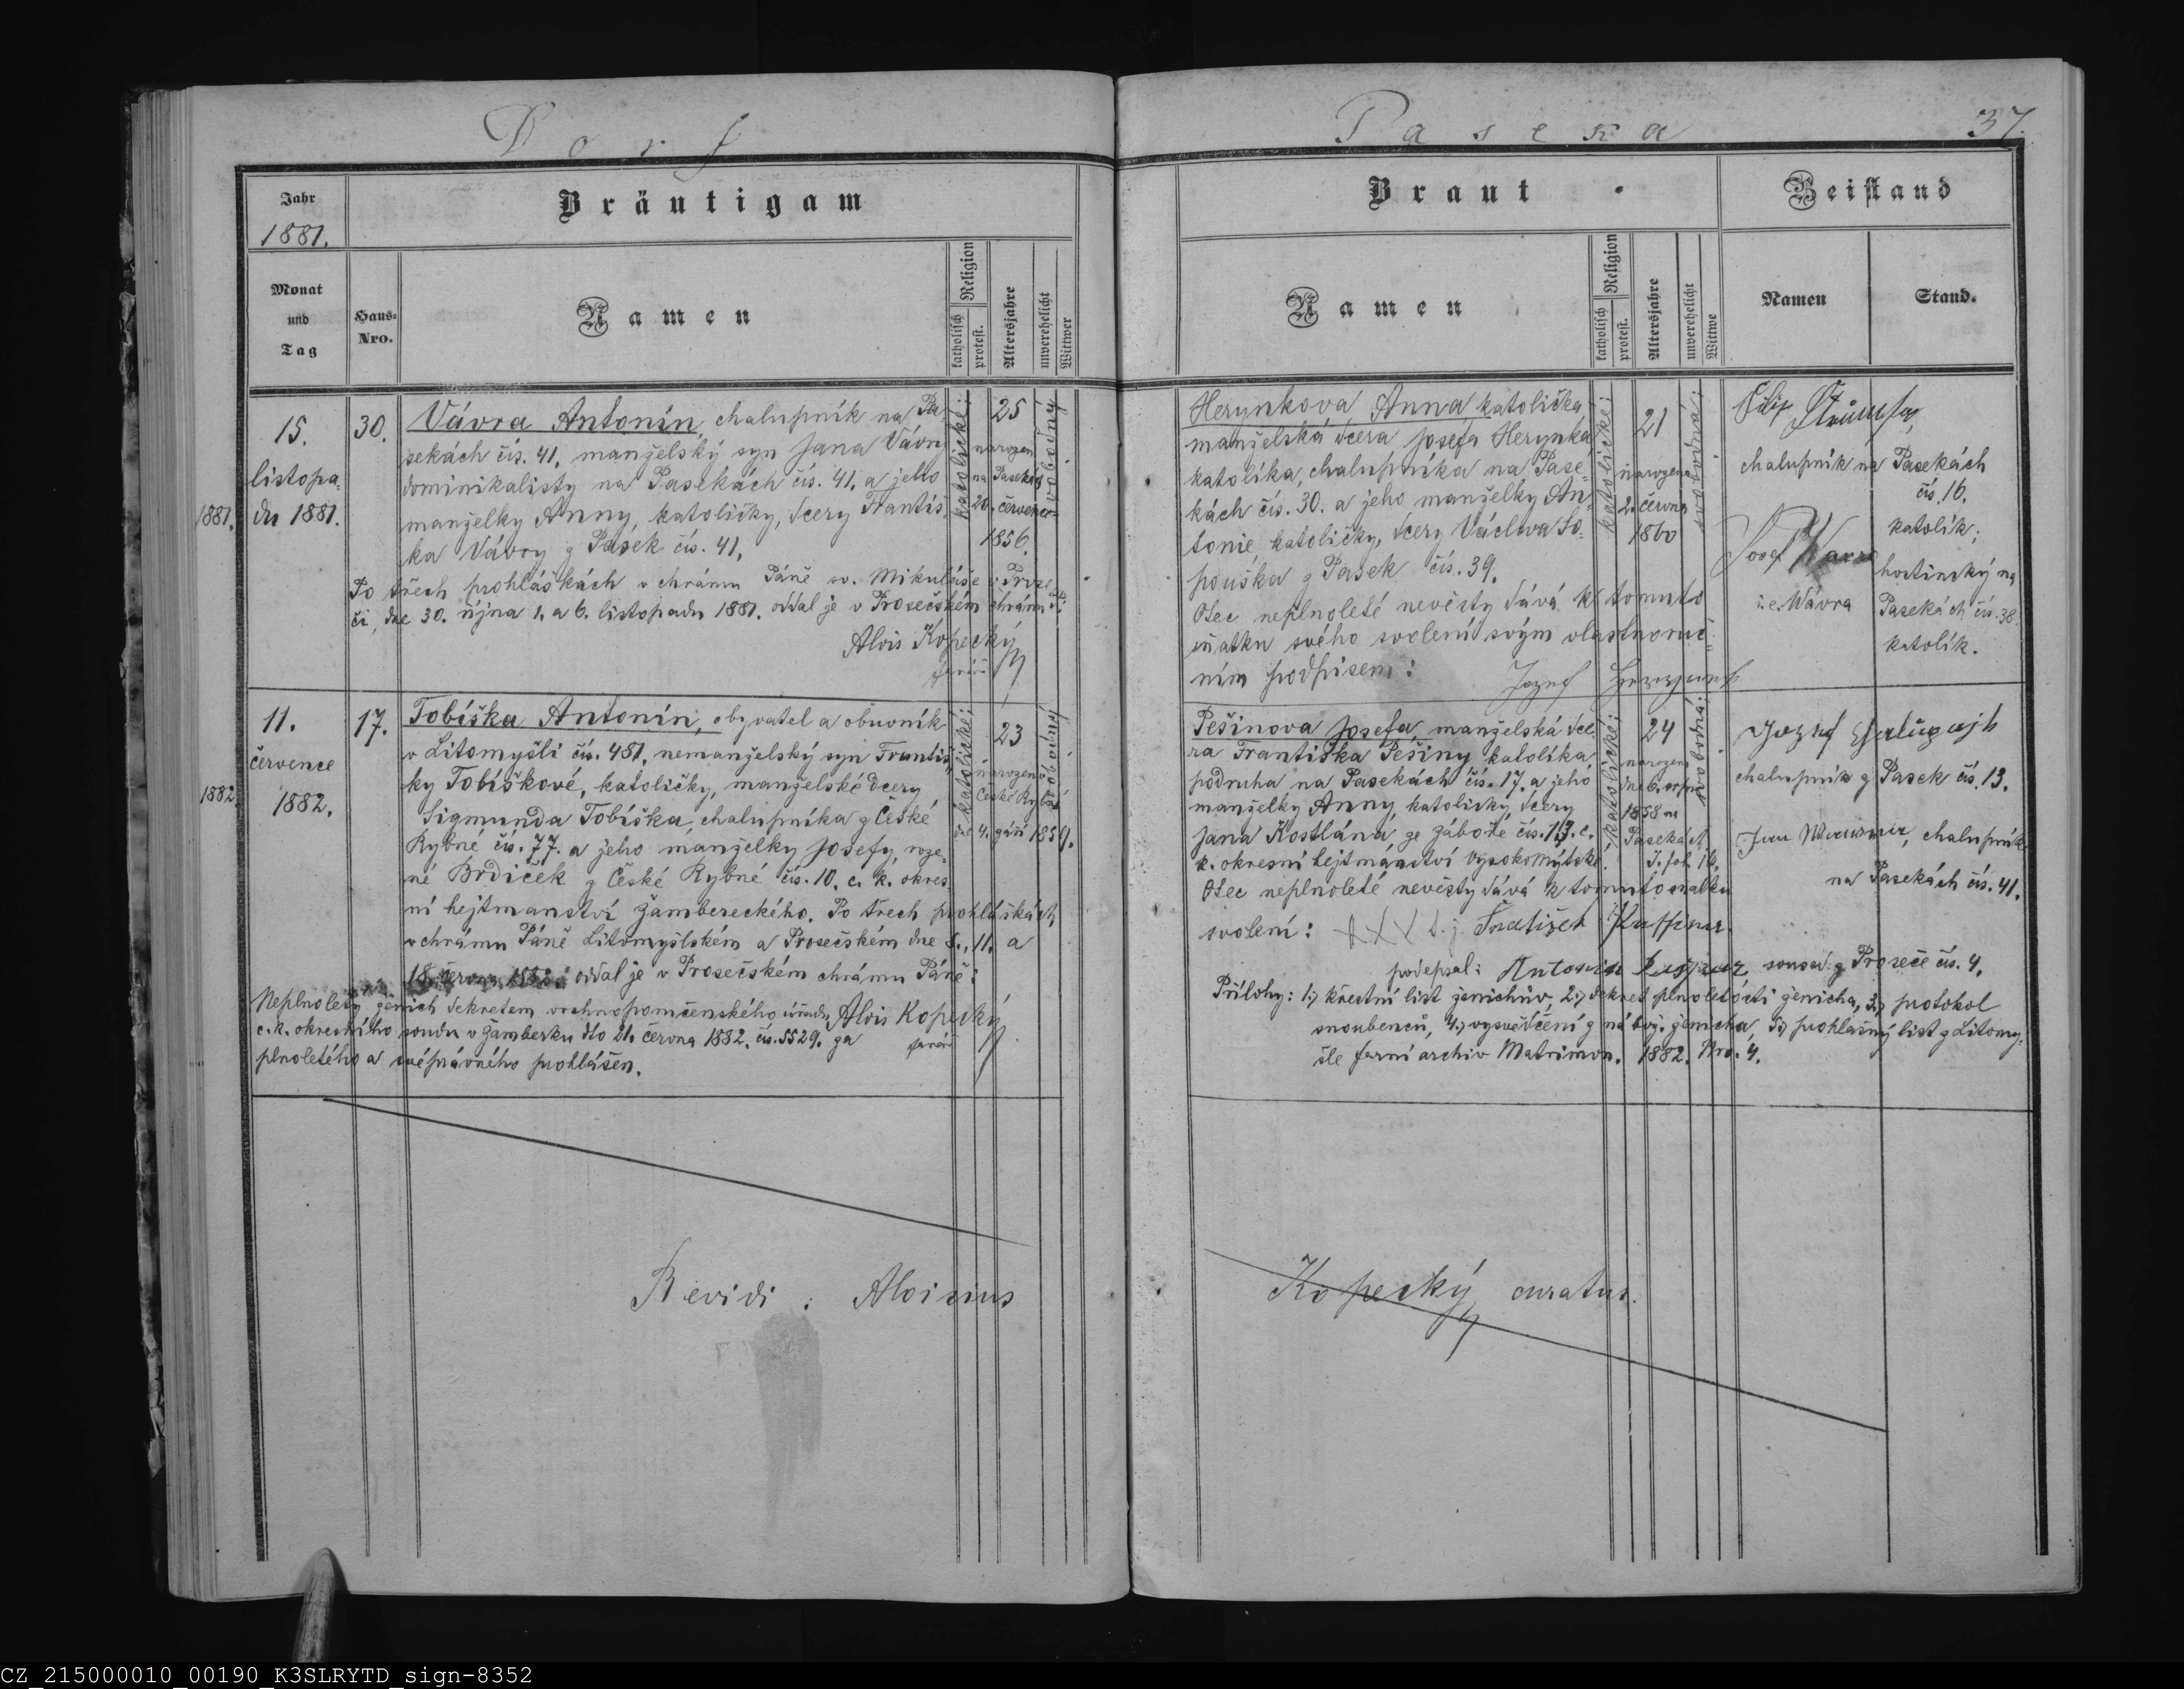 Dorf
Paseka
37.
Jahr
1881.
Bräutigam
Monat
und
Tag
Haus-
Nro.
Namen
Religion
katholisch
protest.
Altersjahre
unverehelicht
Wittwer
Braut
Namen
Religion
katholisch
protest.
Altersjahre
unverehelicht
Wittwe
Beistand
Namen
Stand.
1881.
15.
listopa-
du 1881.
30.
Vávra Antonín, chalupník na Pa-
sekách čís. 41, manželský syn Jana Vávry
dominikalisty na Pasekách čís. 41. a jeho
manželky Anny, katoličky, dcery Františ-
ka Vávry z Pasek čís. 41.
katolické;
25
narozen
na Pasekách
20. července
1856.
svobodný
Po třech prohláškách v chrámu Páně sv. Mikuláše v Prose-
či, dne 30. října 1. a 6. listopadu 1881. oddal je v Prosečském chrámu P.:
Alois Kopecký
farář
Herynkova Anna katolička
manželská dcera Josefa Herynka
katolíka, chalupníka na Pase-
kách čís. 30. a jeho manželky An-
tonie, katoličky, dcery Václava So-
pouška z Pasek čís. 39.
Otec neplnoleté nevěsty dává k tomuto
sňatku svého svolení svým vlastnoruč-
ním podpisem:
Jozef
katolické;
21
narozena
2. června
1860
svobodná;
Filip
chalupník na Pasekách
čís. 16.
katolík;
Josef
i.e. Wávra
hostinský na
Pasekách čís. 38.
katolík.
1882
11.
července
1882.
17.
Tobíška Antonín, obyvatel a obuvník
v Litomyšli čís. 481, nemanželský syn Františ-
ky Tobíškové, katoličky, manželské dcery
Sigmunda Tobíška, chalupníka z České
Rybné čís. 77. a jeho manželky Josefy, roze-
né Brdíček z České Rybné čís. 10. c. k. okres-
ní hejtmanství žambereckého. Po třech prohláškách
v chrámu Páně Litomyšlském a Prosečském dne 11. a
18. června 1882. oddal je v Prosečském chrámu Páně:
katolické;
23
narozen v
České Rybné
dne 4. září 1859.
svobodný
Neplnoletý ženich dekretem vrchnoporučenského úřadu
c. k. okresního soudu v Žamberku dto 21. června 1882. čís. 5529. za
plnoletého a svéprávného prohlášen.
Alois Kopecký
farář
Pešinova Josefa, manželská dce-
ra Františka Pešiny katolíka,
podruha na Pasekách čís. 17. a jeho
manželky Anny, katoličky, dcery
Jana Kostlána, ze Zábořé čís. 13. c.
k. okresní hejtmánství Vysokomýtské.
Otec neplnoleté nevěsty dává k tomuto sňatku
svolení: +++
podepsal: Antonín
soused z Proseče čís. 4.
katolické;
24
narozena
dne 6. srpna
1858 na
Pasekách
svobodná;
Jozef
chalupník z Pasek čís. 13.
Jan
chalupník
na Pasekách čís. 41.
Přílohy: 1.) křestní list ženichův, 2.) dekret plnoletosti ženicha, 3.) protokol
snoubenců, 4.) vysvědčení z nábož. ženicha, 5.) prohlašný list z Litomy-
šle farní archiv Matrimon. 1882. Nro. 4.
Revidi: Aloisius
Kopecký curatus.
CZ_215000010_00190_K3SLRYTD_sign-8352